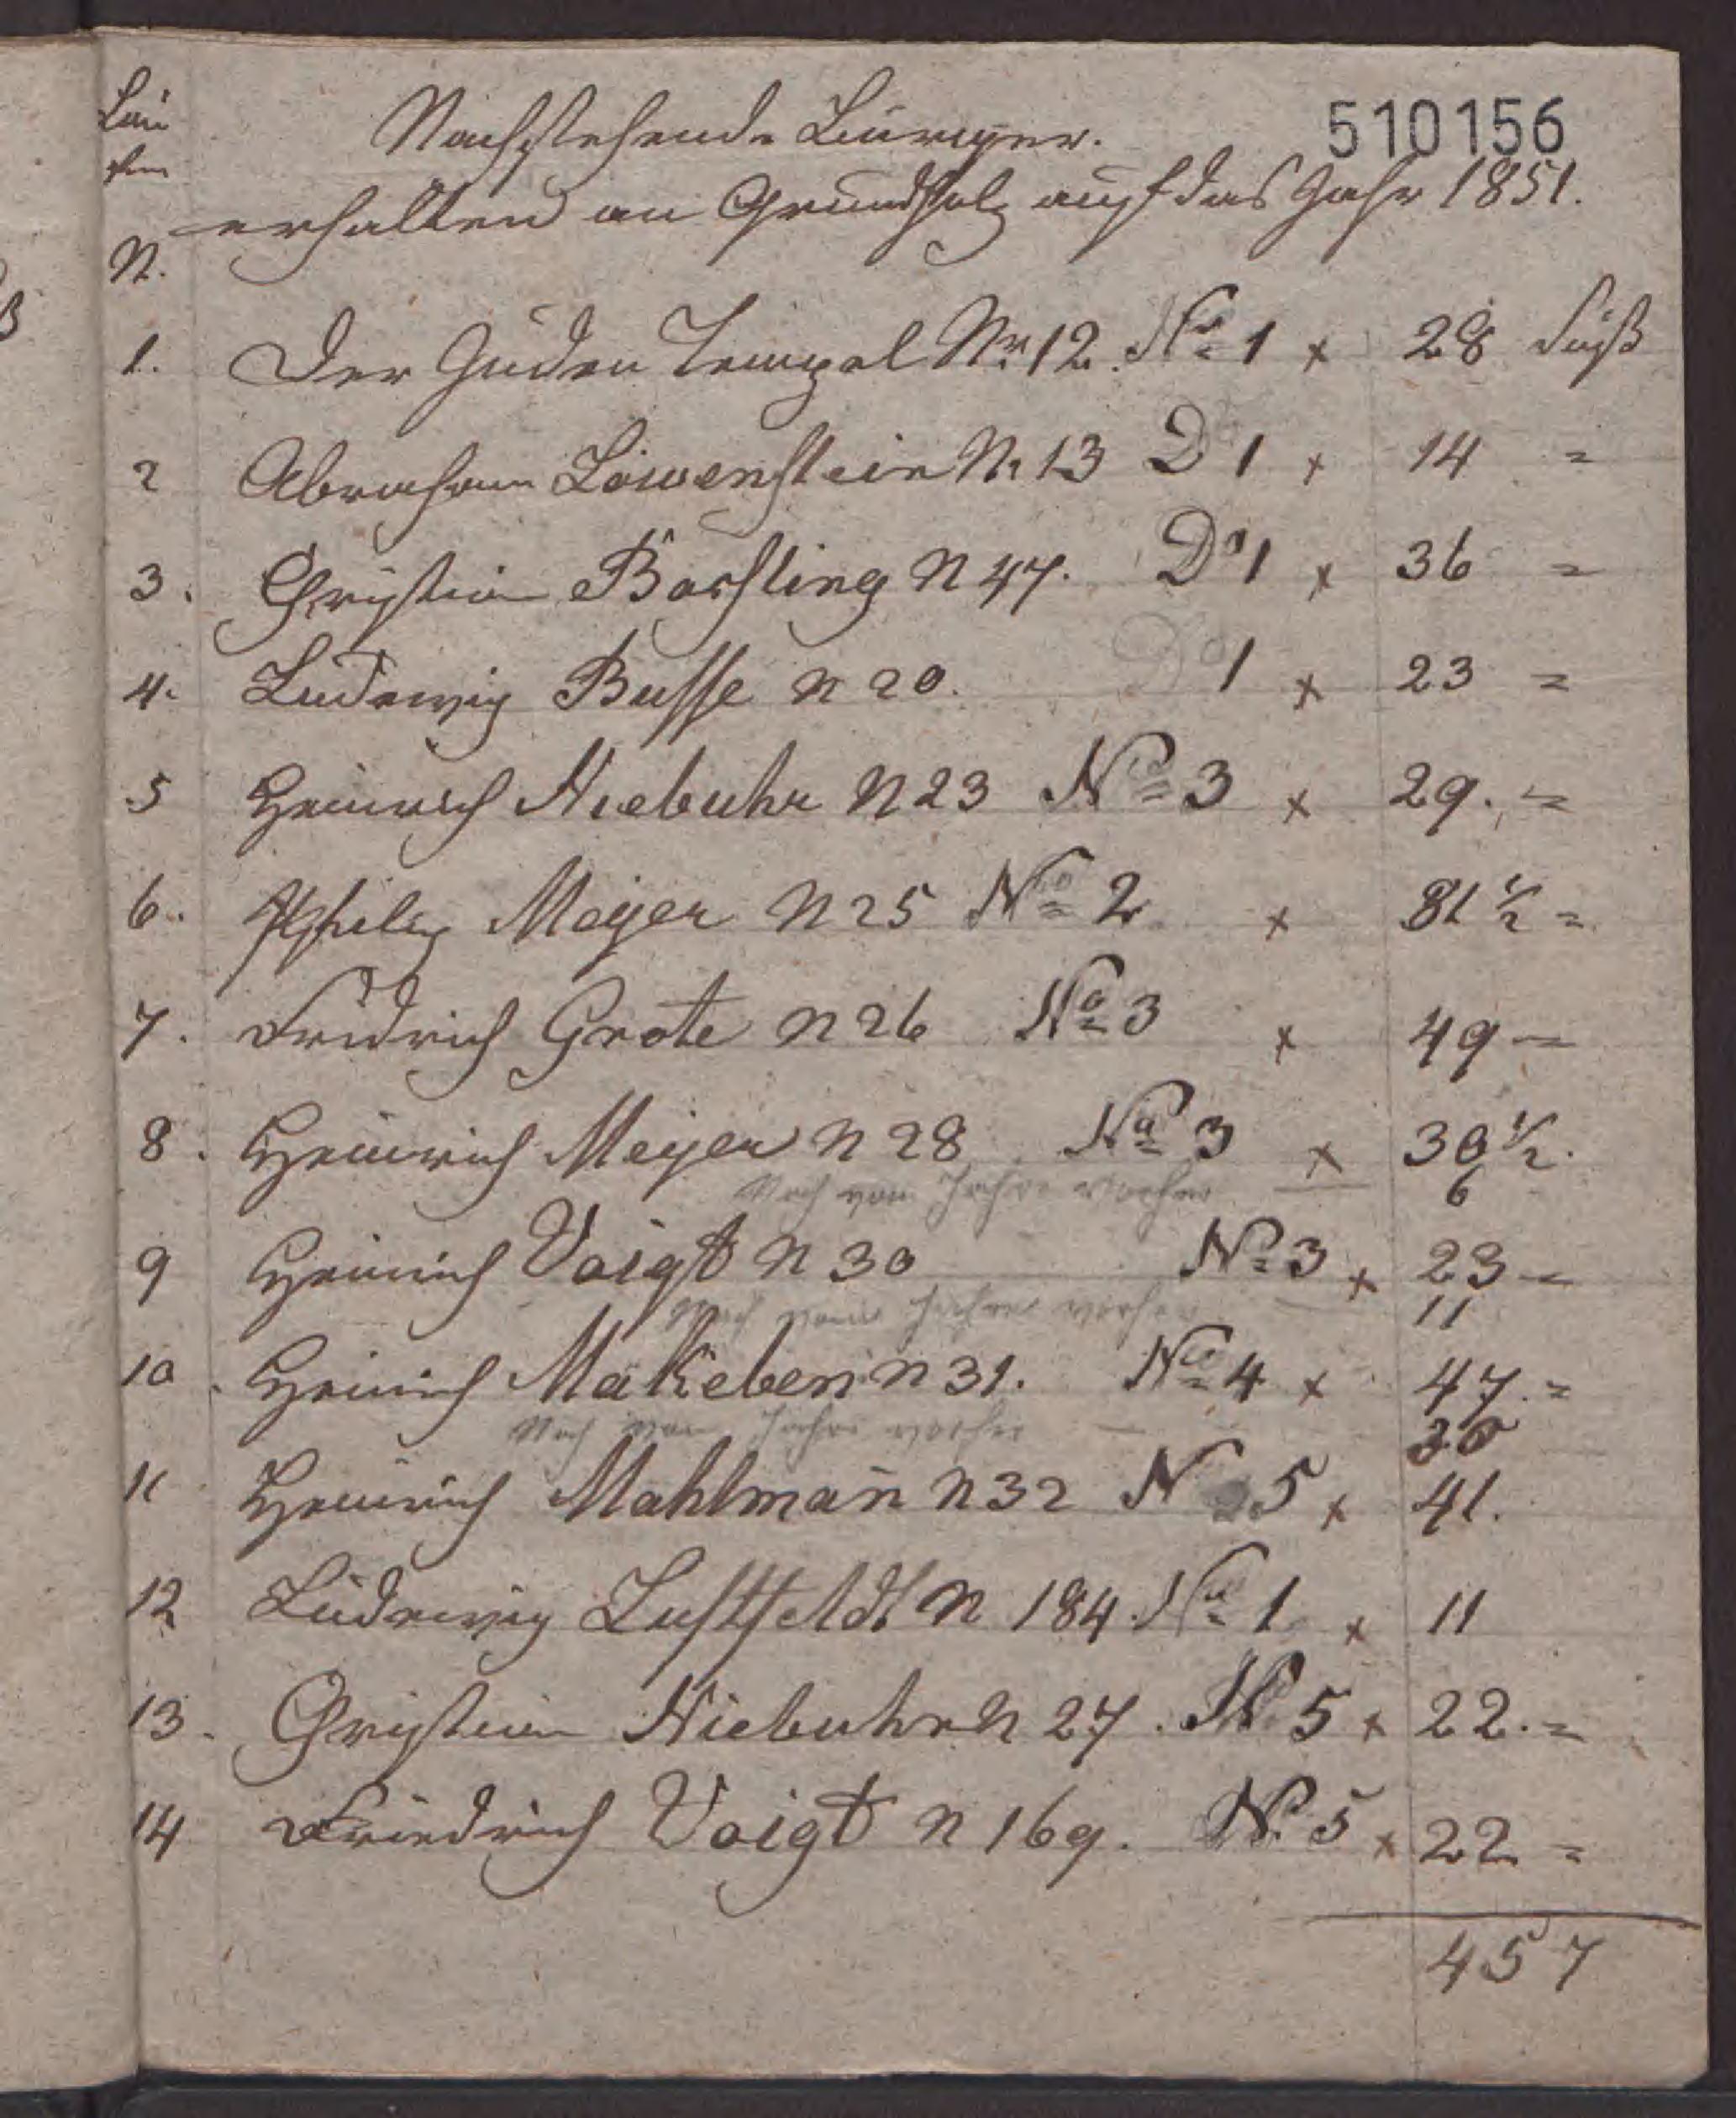 510156
Lau
fen
N.
Nachstehende Bürger.
erhalten an Grundholz auf das Jahr 1851.
1. Der Juden Tempel Nr 12. No 1 x 28 Fuß
2 Abraham Löwenstein N. 13 Do 1 x 14 =
3. Christian Börsling N 47. Do 1 x 36 =
4. Ludewig Busse N 20. Do 1 x 23 =
5 Heinrich Niebuhr N 23 No 3 x 29. =
6. Philip Meyer N 25 No 2 x 81 1/2 =
7. Fridrich Grote N 26 No 3 x 49 =
8. Heinrich Meyer N 28 No 3 x 30 1/2.
Noch vom Jahre vorher — 6
9 Heinrich Voigt N 30 No 3 x 23 =
Noch vom Jahre vorher — 11
10. Heinrich Makeben N 31. No 4 x 47. =
Noch vom Jahre vorher —
11 Heinrich Mahlman̄ N 32 N 5 x 41.
12 Ludewig Lustfeldt N 184. No 1 x 11
13. Christian Niebuhr N 27. No 5 x 22. =
14 Friedrich Voigt N 169. No 5 x 22 =
457